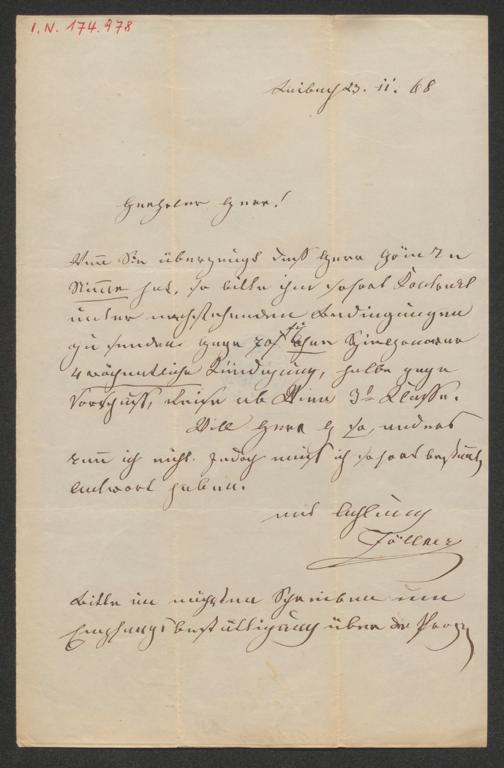 I.N. 174.978
Laibach 23. 11. 68
Geehrter Herr!
Wenn Sie überzeugt daß Herr
Stimme hat, so bitte ihm sofort Contract
unter nachstehenden Bedingungen
zu senden. Gage 70 f Spielhonorar
4 wöchentliche Kündigung, halbe Gage
Vorschuß, Reise ab Wien 3t Classe.
Will Herr H so, anders
kann ich nicht. Jedoch muß ich sofort bestimmte
Antwort haben.
mit Achtung
Zöllner
Bitte im nächsten Schreiben um
Empfangsbestättigung über die